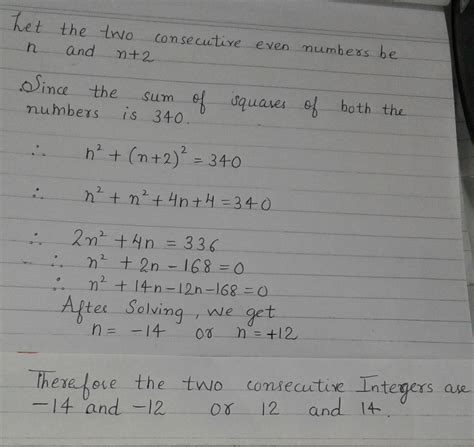 Let the two consecutive even numbers be
n and n+2
Since the sum of squares of both the
numbers is 340.
∴ n² + (n+2)² = 340
∴ n² + n² + 4n + 4 = 340
∴ 2n² + 4n = 336
∴ n² + 2n - 168 = 0
∴ n² + 14n - 12n - 168 = 0
After Solving, we get
n = -14 or n = +12
Therefore the two consecutive Integers are
-14 and -12 or 12 and 14.